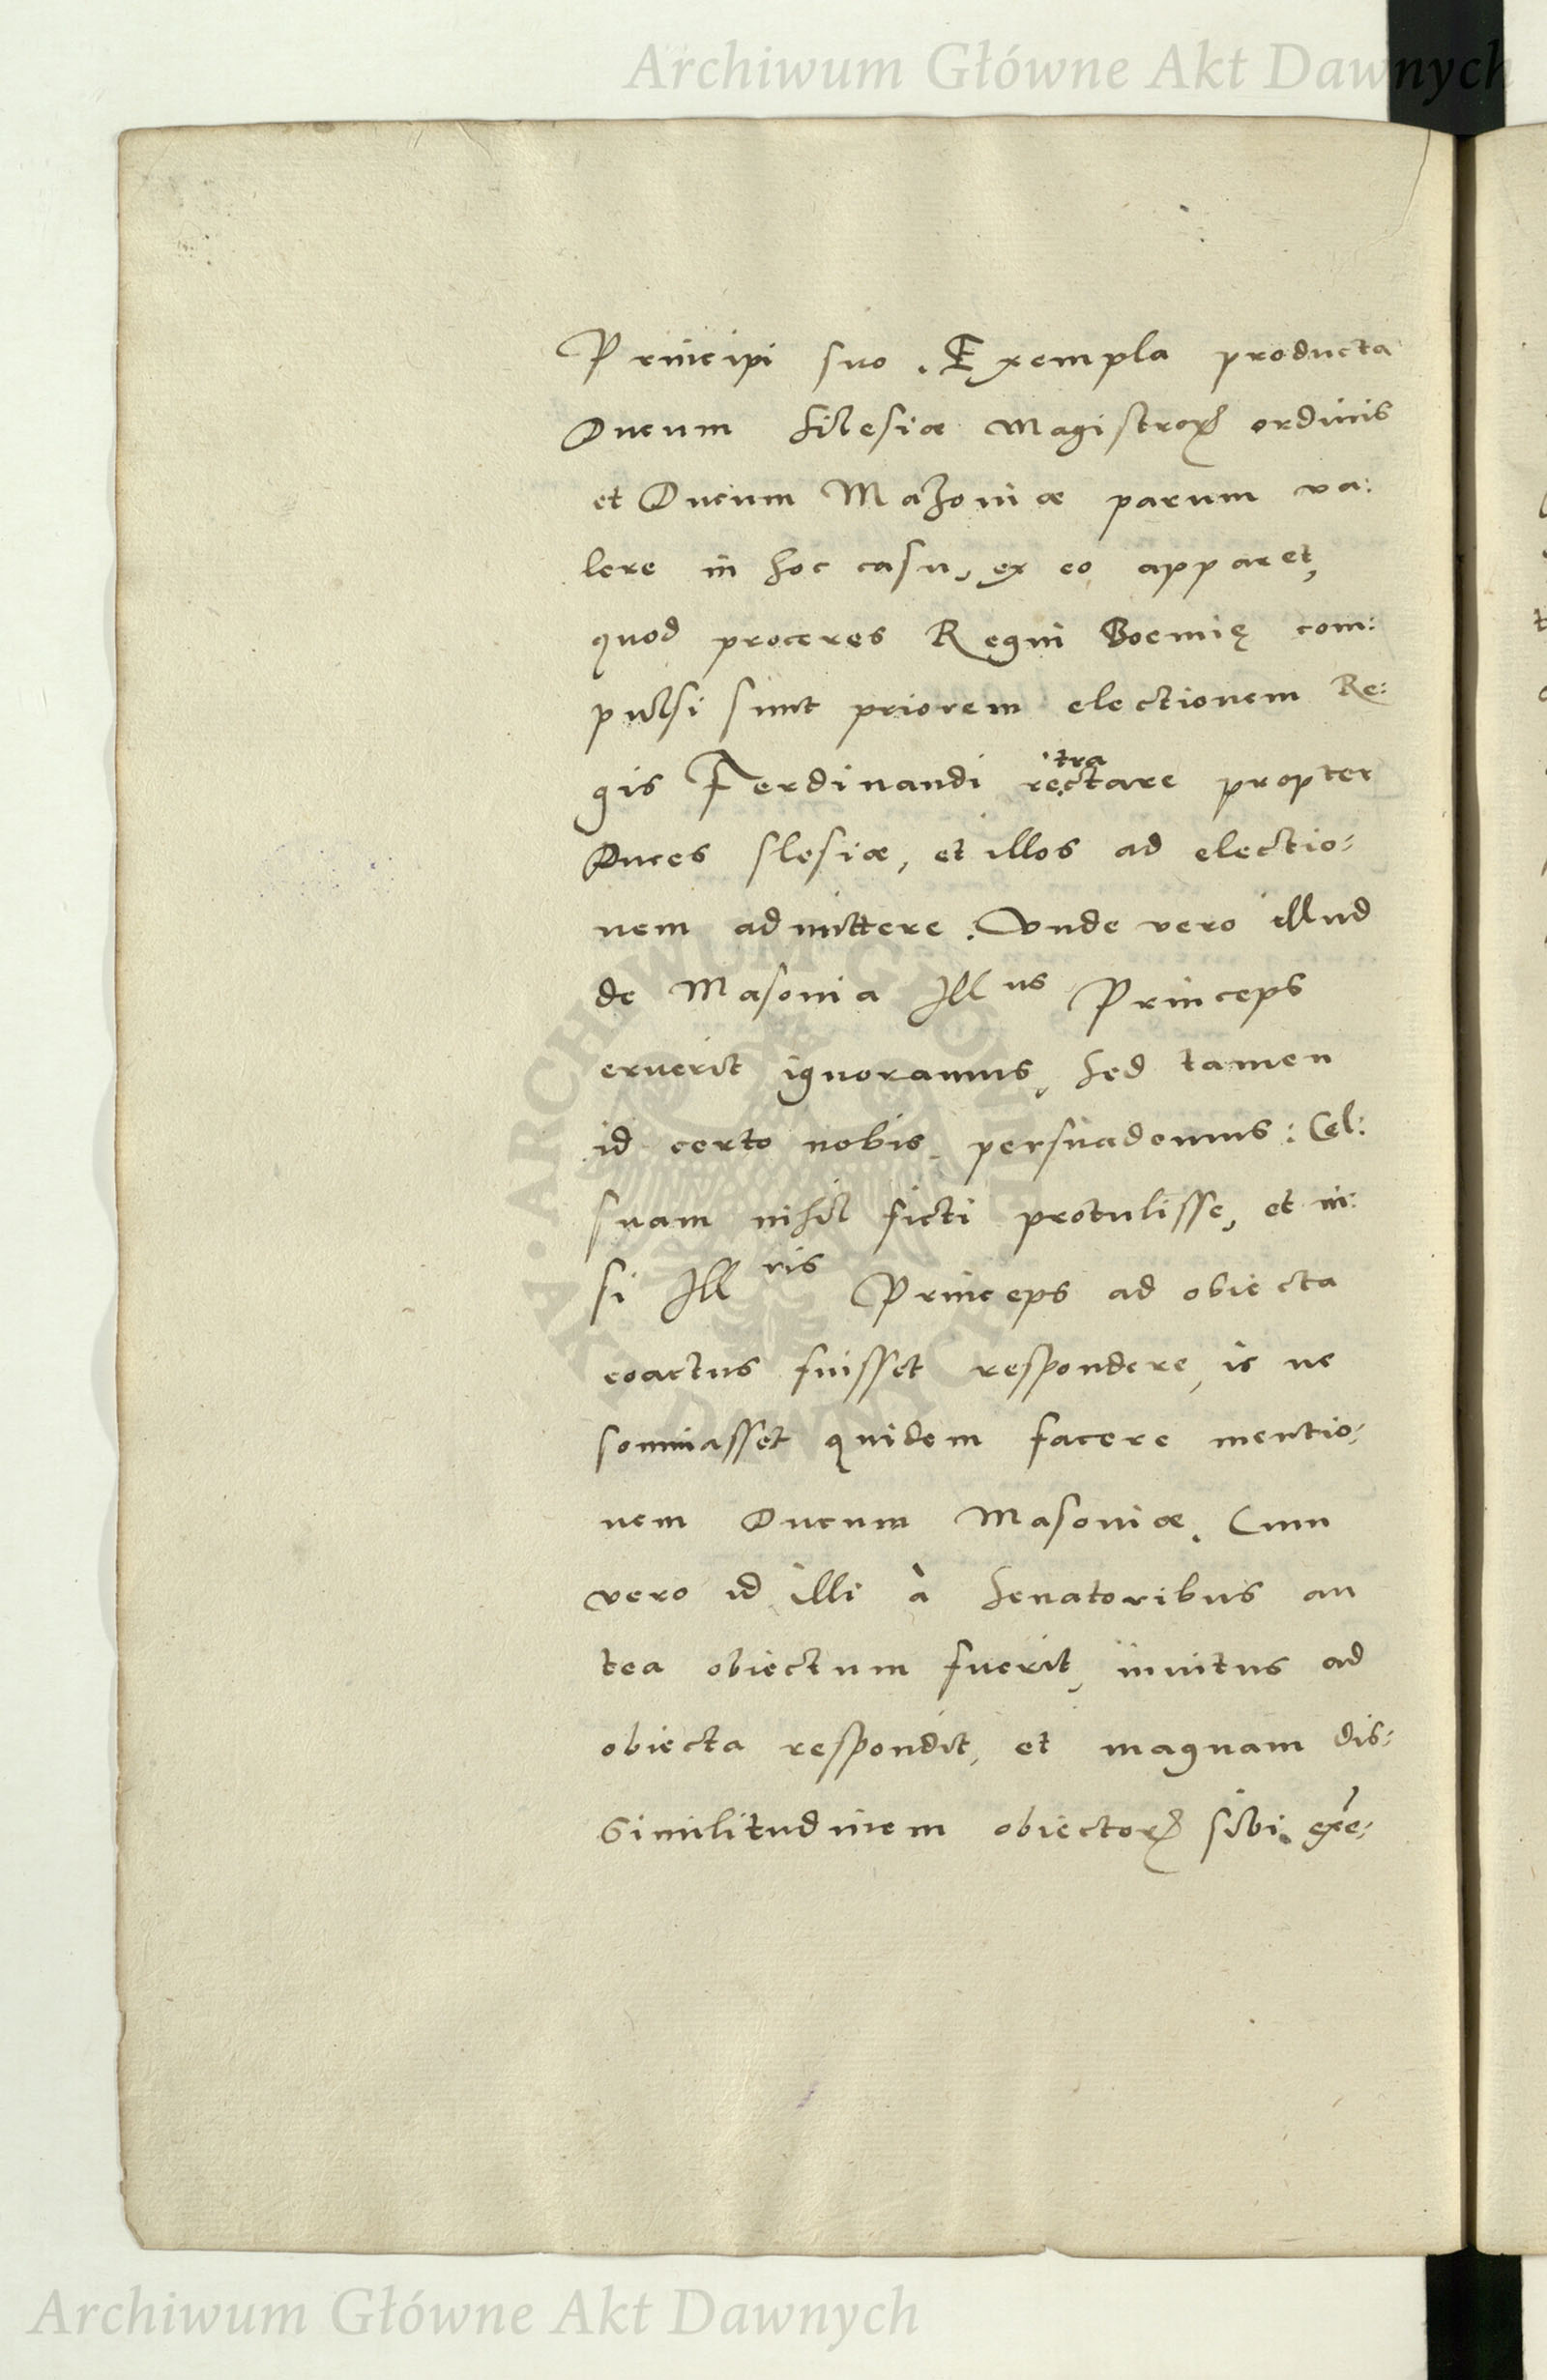 Archiwum Główne Akt Dawnych
Principi suo. Exempla producta
Ducum Silesiæ Magistroꝝ ordinis
et Ducum Mazoniæ parum va:
lere in hoc casu, ex eo apparet,
quod proceres Regni Boemię com:
pulsi sunt priorem electionem Re:
gis Ferdinandi retractare propter
Duces Slesiæ, et illos ad electio:
nem admittere. Unde vero illud
de Masonia Ill us Princeps
eruerit ignoramus, sed tamen
id certo nobis persuademus: Cel:
suam nihil ficti protulisse, et ni:
si Ill ris Princeps ad obiecta
coactus fuisset respondere, is ne
somniasset quidem facere mentio:
nem Ducum Masoniæ. Cum
vero id illi à Senatoribus an
tea obiectum fuerit, inuitus ad
obiecta respondit, et magnam dis:
similitudinem obiectoꝝ sibi exe:
ARCHIWUM GŁÓWNE AKT DAWNYCH
Archiwum Główne Akt Dawnych